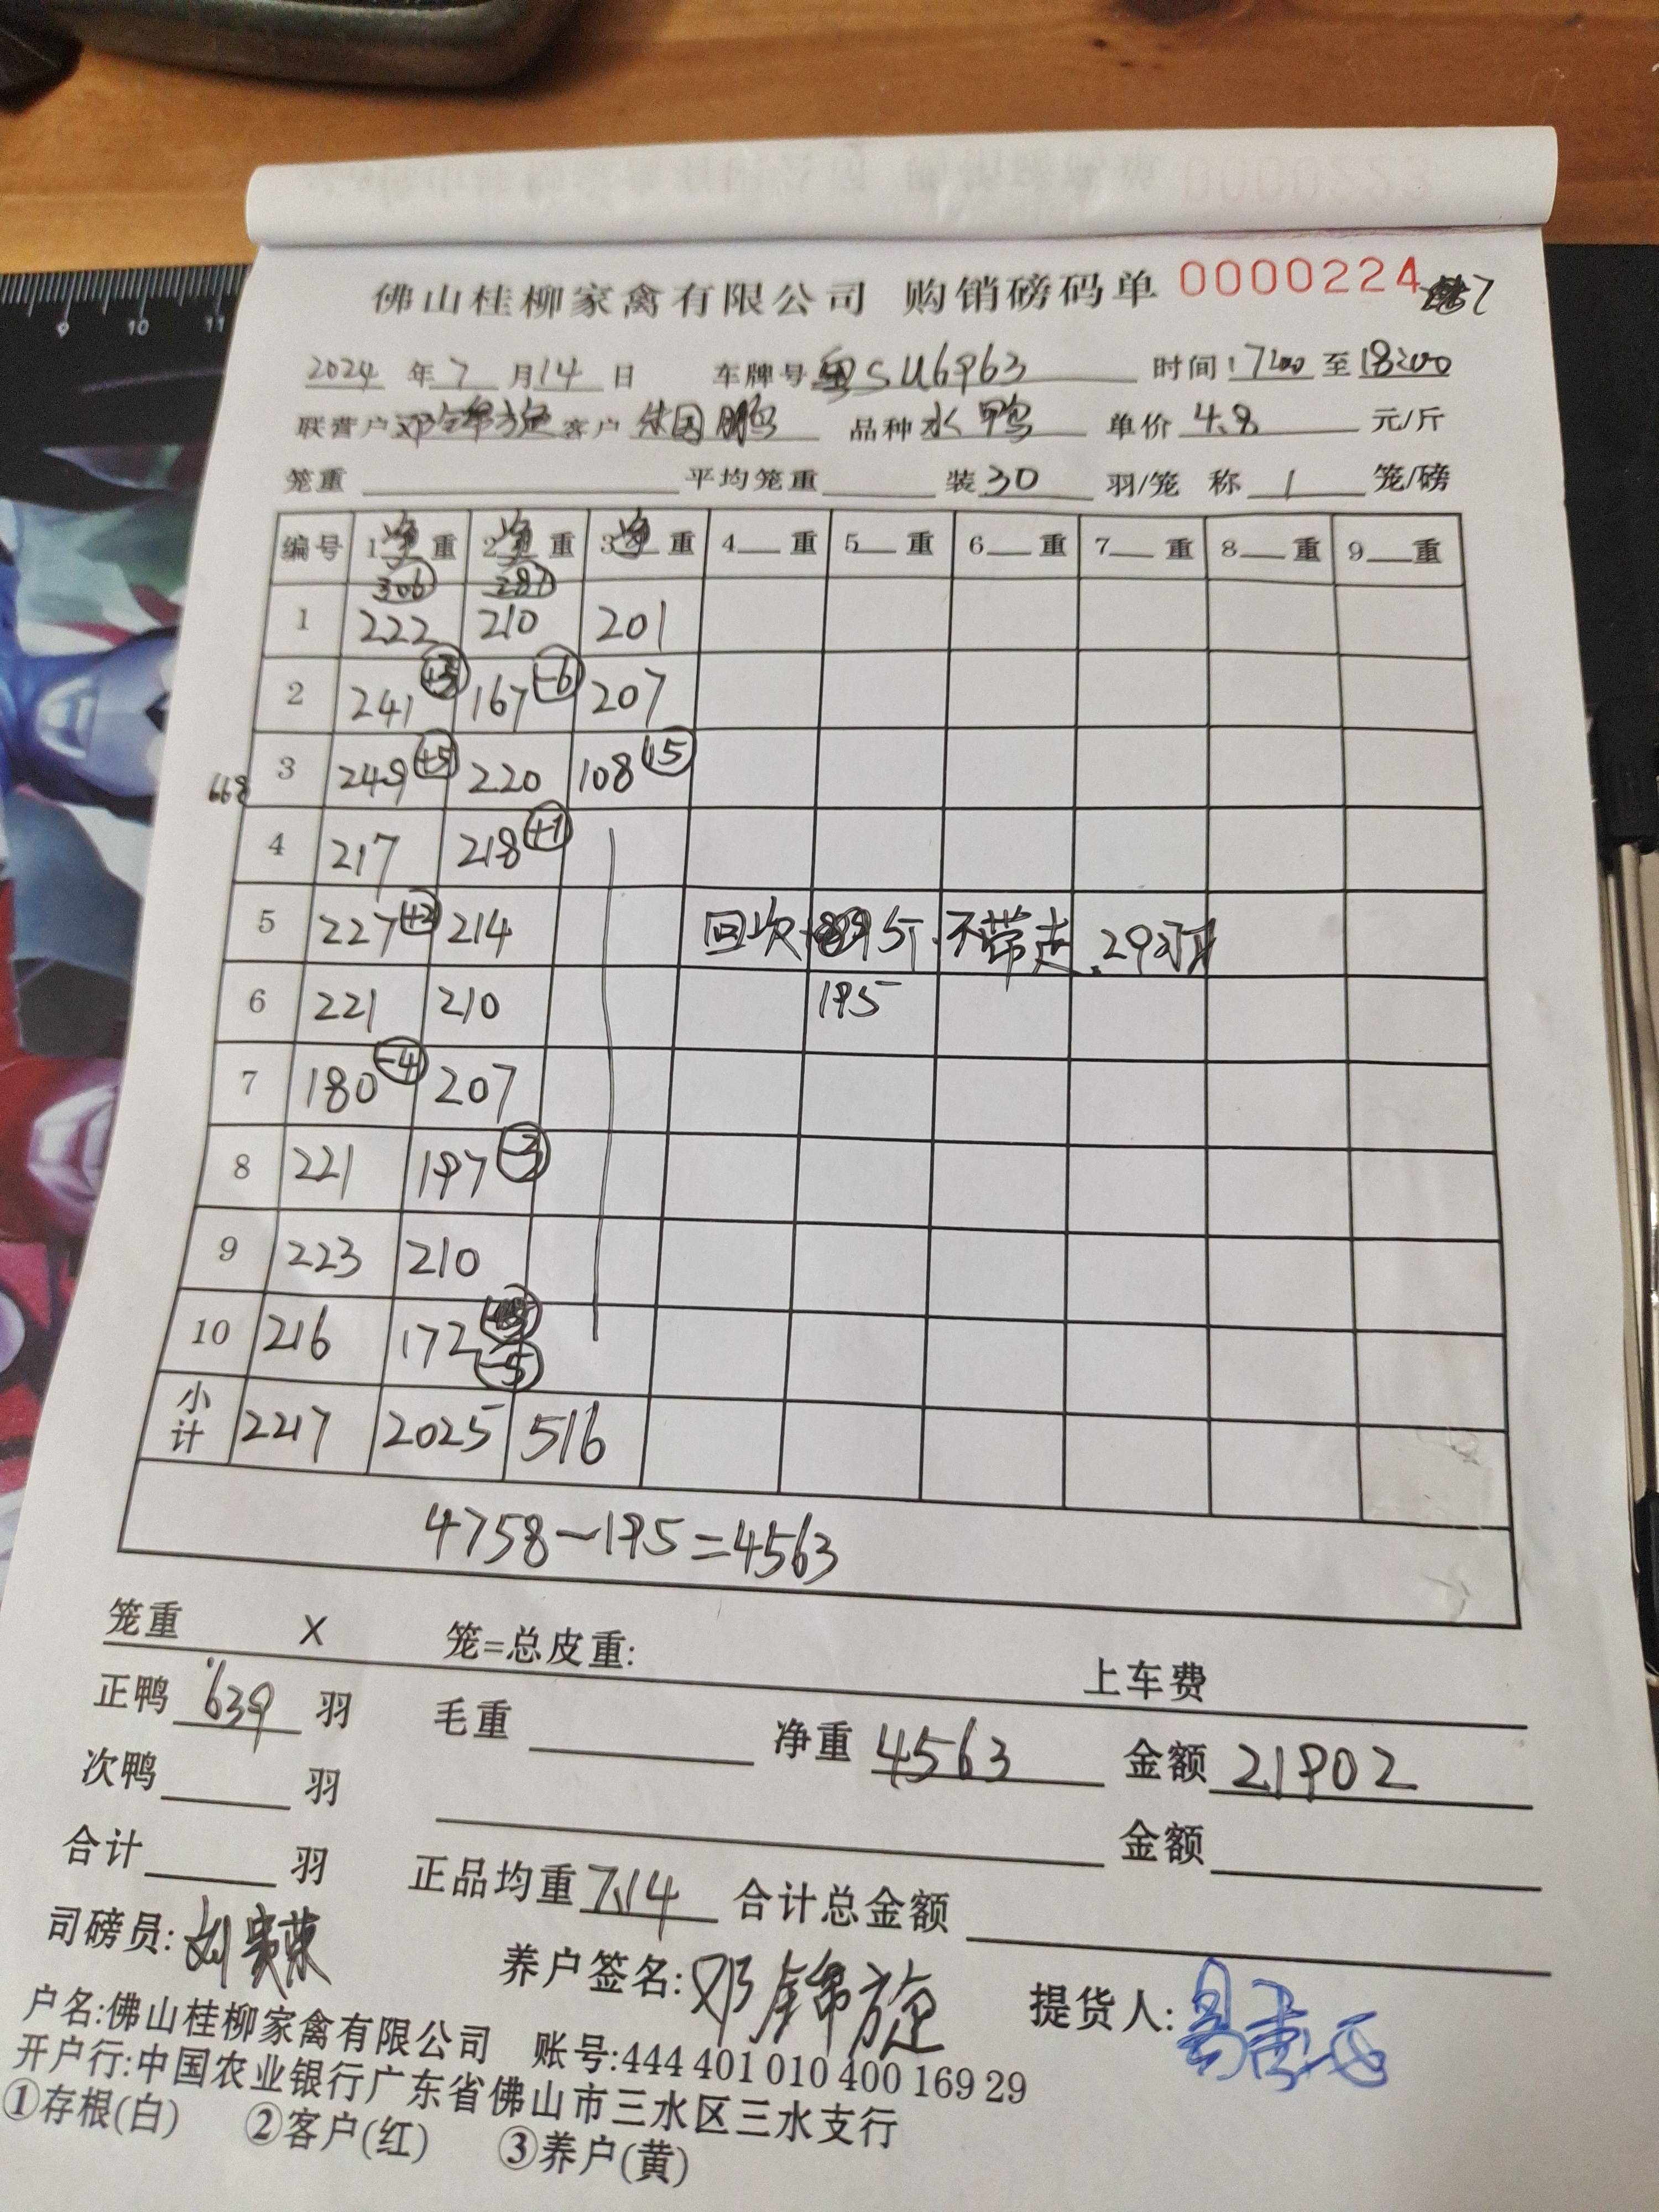 9 10 11
0000223
佛山桂柳家禽有限公司 购销磅码单 0000224
2024 年 7 月 14 日 车牌号 粤SU6963 时间 17:00 至 18:00
联营户 邓锦旋 客户 朱国鹏 品种 水鸭 单价 4.8 元/斤
笼重 平均笼重 装 30 羽/笼 称 1 笼/磅
编号 1净重 2净重 3净重 4 重 5 重 6 重 7 重 8 重 9 重
306 287
1 222 210 201
2 241 +3 167 -6 207
668 3 249 +5 220 108 15
4 217 218 +1
5 227 +2 214 回次 斤 不带走 29羽
6 221 210 195
7 180 -4 207
8 221 197 -3
9 223 210
10 216 172 -5
小计 2217 2025 516
4758-195=4563
笼重 X 笼=总皮重: 上车费
正鸭 639 羽 毛重 净重 4563 金额 21902
次鸭 羽 金额
合计 羽 正品均重 7.14 合计总金额
司磅员: 养户签名: 邓锦旋 提货人:
户名:佛山桂柳家禽有限公司 账号:444 401 010 400 169 29
开户行:中国农业银行广东省佛山市三水区三水支行
①存根(白) ②客户(红) ③养户(黄)